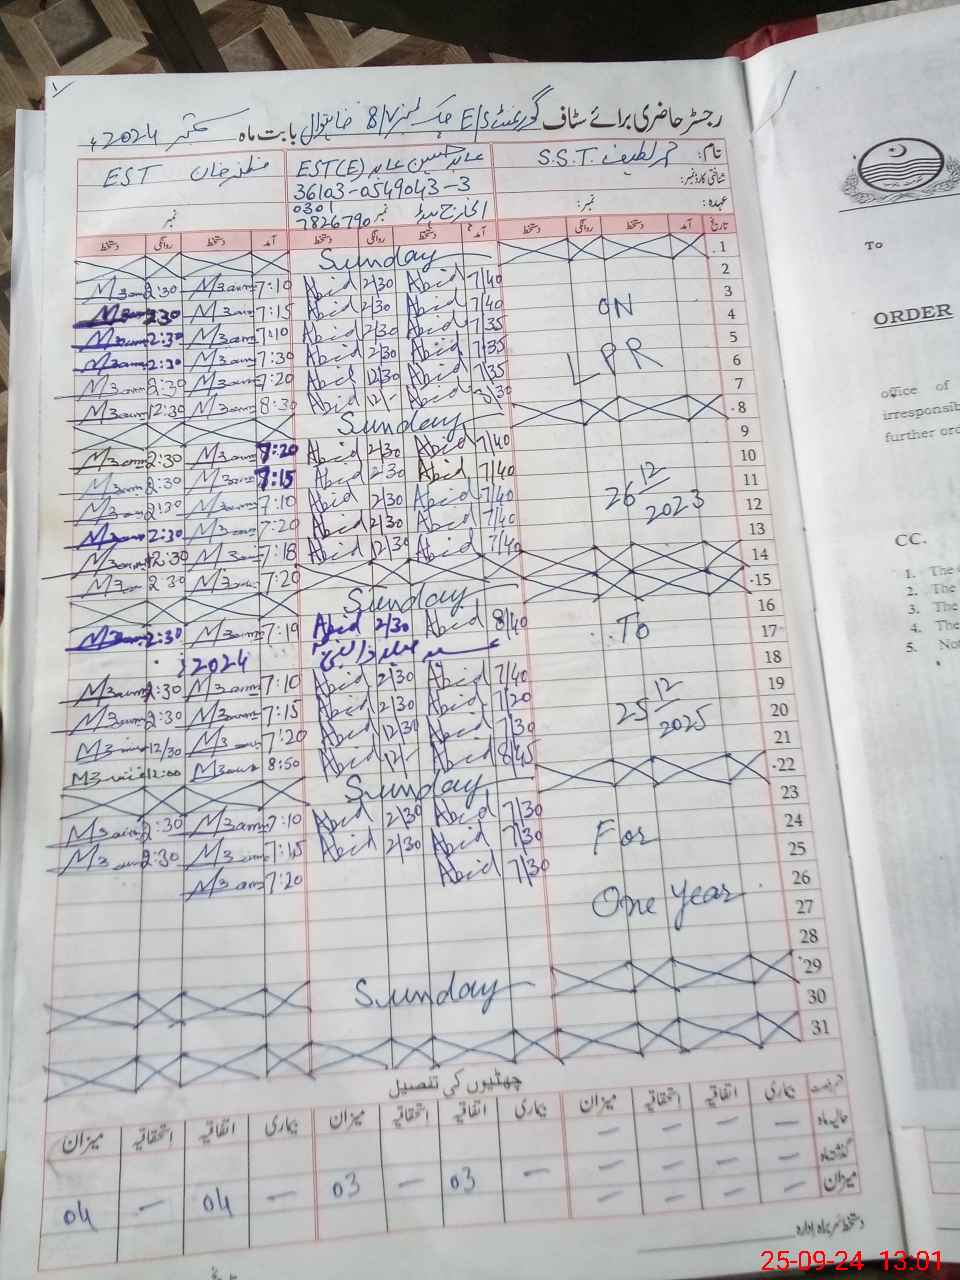 رجسٹر حاضری برائے سٹاف گورنمنٹ E/S چک نمبر 8/V خانیوال بابت ماہ ستمبر 2024ء
نام: محمد لطیف S.S.T.
عابد حسین عابد EST(E)
مظہر خان EST
شناختی کارڈ نمبر:
36103-0549043-3
عہدہ: نمبر:
انچارج ہیڈ نمبر 0301
7826790
نمبر
تاریخ آمد دستخط روانگی دستخط آمد دستخط روانگی دستخط آمد دستخط روانگی دستخط
1 Sunday
2 7/40 Abid 2/30 Abid 7:10 2:30
3 7/40 Abid 2/30 Abid 7:15
4 7/35 Abid 2/30 Abid 7:10 2:30
ON
5 7/35 Abid 2/30 Abid 7:30 2:30
6 7/35 Abid 12/30 Abid 7:20
LPR
7 8/30 Abid 12/- Abid 8:30 12:30
8 Sunday
9 7/40 Abid 2/30 Abid 7:20 2:30
10 7/40 Abid 2/30 Abid 7:15 2:30
11 7/40 Abid 2/30 Abid 7:10 2:30
26 12/2023
12 7/40 Abid 2/30 Abid 7:20 2:30
13 7/40 Abid 12/30 Abid 7:18 12:30
14 7:20 2:30
15 Sunday
16 8/40 Abid 2/30 Abid 7:19 2:30
17 To عید میلاد النبیؐ 2024ء
18 7/40 Abid 2/30 Abid 7:10 2:30
19 7/20 Abid 2/30 Abid 7:15 2:30
25 12/2025
20 7/30 Abid 12/30 Abid 7:20 12/30
21 8/45 Abid 12/- Abid 8:50 12:00
22 Sunday
23 7/30 Abid 2/30 Abid 7:10 2:30
24 For 7/30 Abid 2/30 Abid 7:15 2:30
25 7/30 Abid 7:20
26
One year
27
28
29 Sunday
30
31
چھٹیوں کی تفصیل
بیماری اتفاقیہ استحقاقیہ میزان بیماری اتفاقیہ استحقاقیہ میزان بیماری اتفاقیہ استحقاقیہ میزان
حالیہ ماہ – – – –
گذشتہ ماہ – – – –
میزان – – – – – 03 – 03 – 04 – 04
دستخط سربراہ ادارہ
To
ORDER
office of
irresponsib
further ord
CC.
1. The
2. The
3. The
4. The
5. Not
25-09-24 13:01